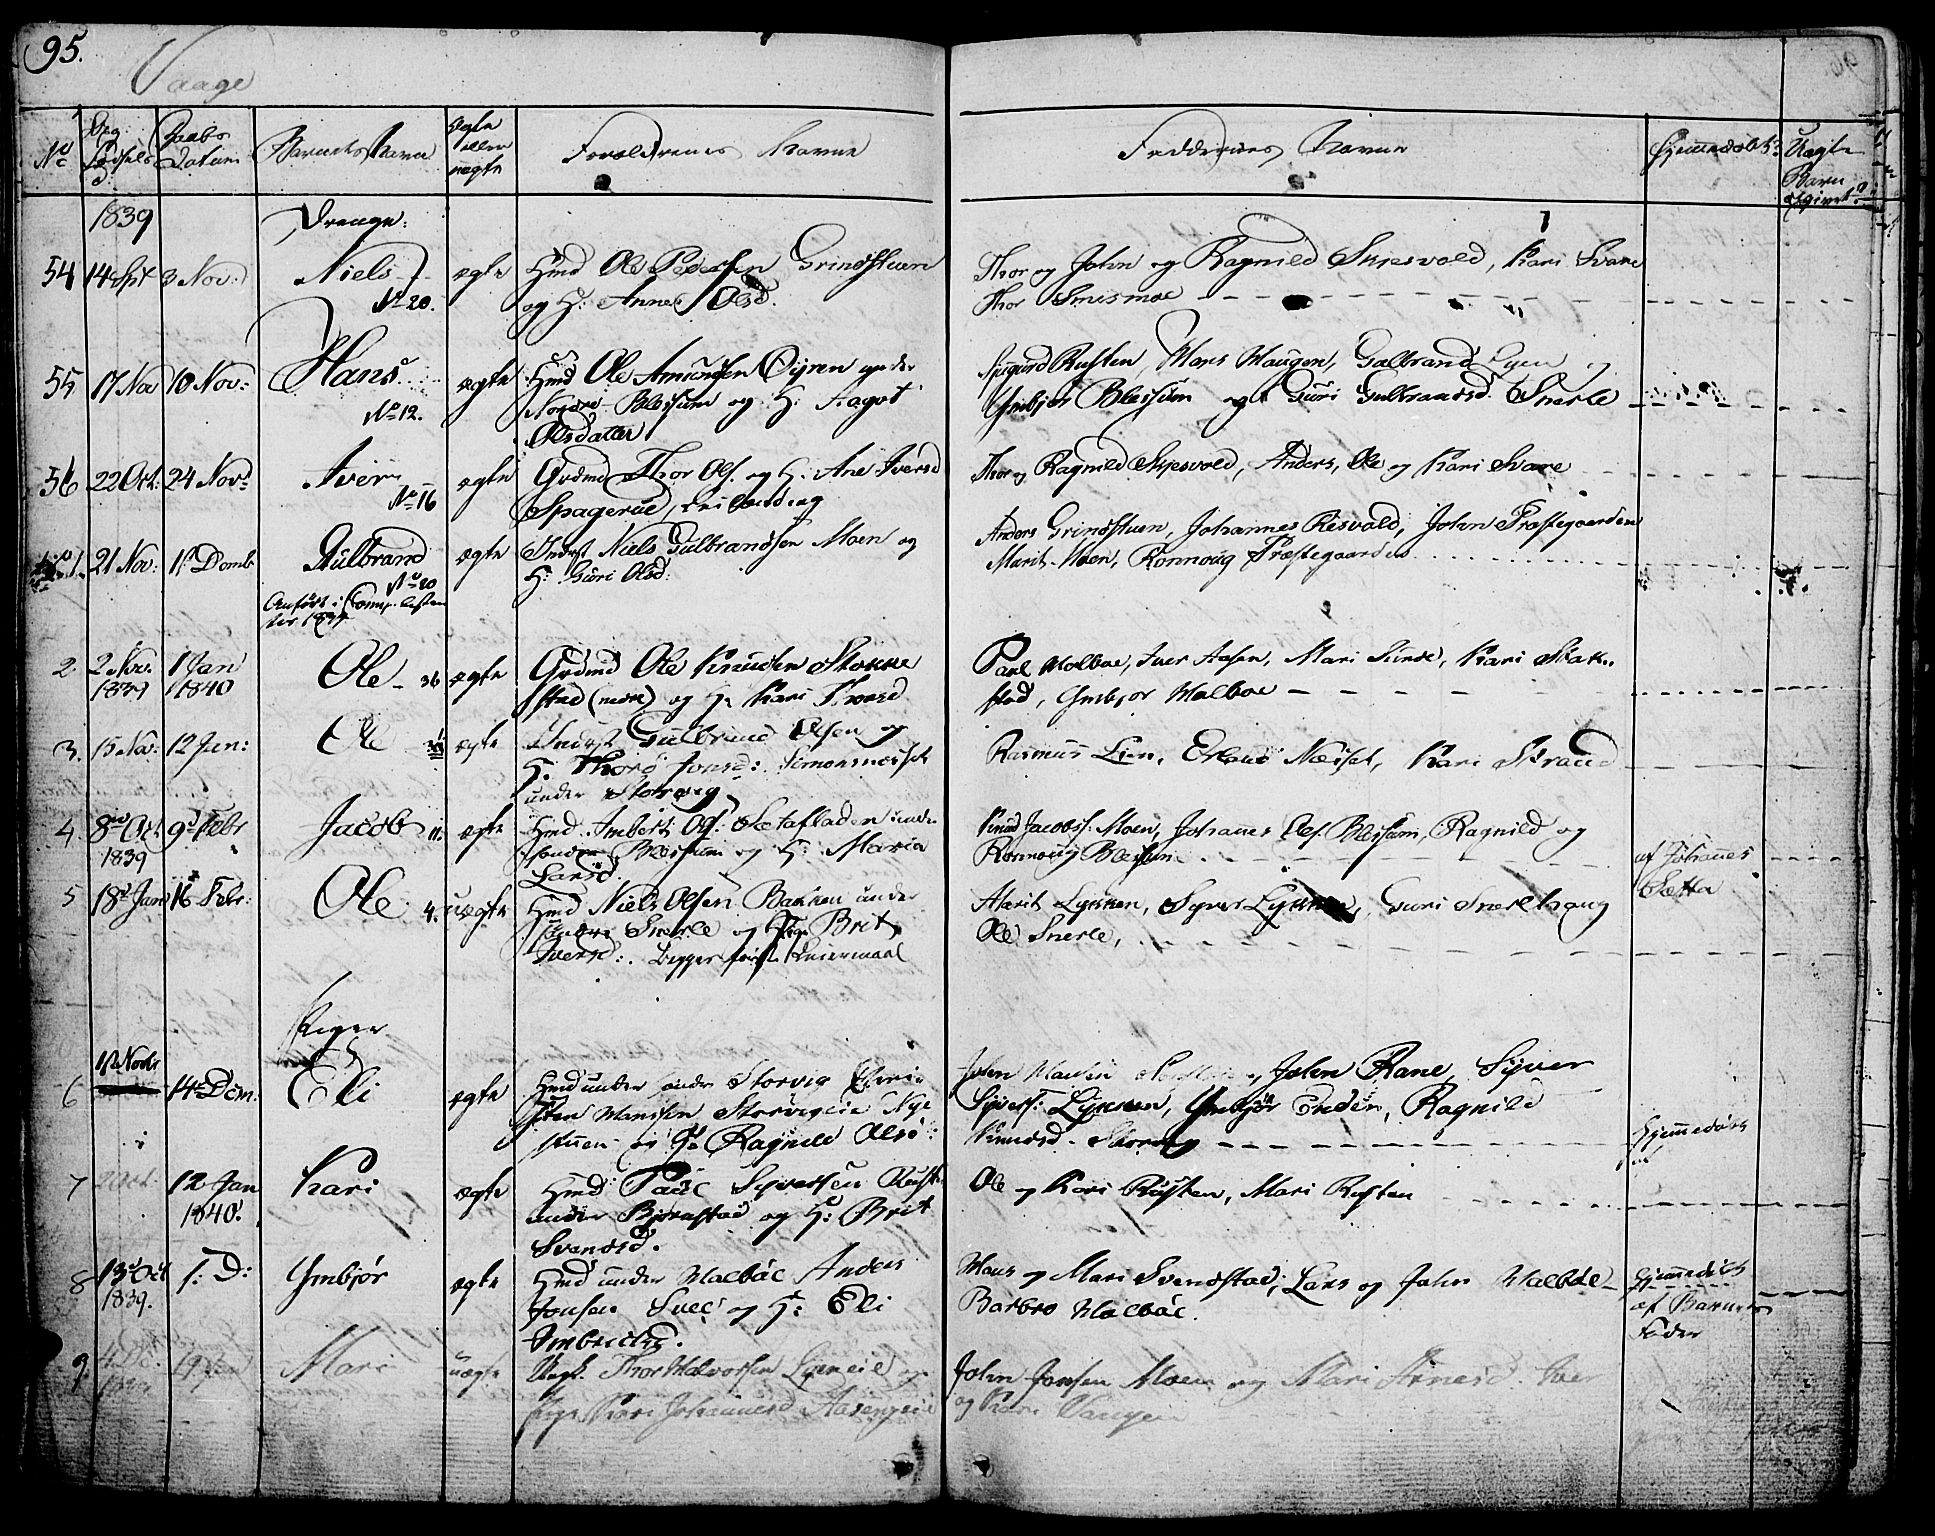 95.
Vaage
No
Datum
Barnets Navn
ægte eller uægte
Forældrenes Navne
Faddernes Navne
Hjemmedøbt
Uægte Barn
1839
Drenge:
54 14 Spt 3 Nov: Niels No 20. ægte Hmd Ole Pedersen Grindstuen
og H: Anne Olsd.
Thor og John og Ragnild Skjesvold, Kari Svare
Thor Smismoe
55 17 Nov 10 Nov: Hans No 12. ægte Hmd Ole Amundsen Øyren under
Nordre Blessum og H: Aagot
Olsdatter
Sigurd Rusten, Hans Haugen, Gulbrand Øyen og
Ymbjør Blessum og Guri Gulbrandsd. Snerle
56 22 Oct: 24 Nov: Iver No 16 ægte Grdmd Thor Ols. og H: Ane Iversd
Spagerud
Thor og Ragnild Skjesvold, Anders, Ole og Kari Svare
1. 21 Nov: Gulbrand No 20 ægte Inderst Niels Gulbrandsen Moen og
H: Guri Olsd:
Anført i
for 1839
Anders Grindstuen, Johannes Risvold, John Præstegaarden
Marit Moen, Ronnoug Præstegaarden
2. 2 Nov. 1839 1 Jan 1840 Ole 36 ægte Grdmd Ole Knudsen Stokke
stad (nedre) og H: Kari Iversd
Paul Valboe, Iver Aasen, Mari Sunde, Kari Stak-
stad, Ymbjør Valboe
3. 15 Nov: 12 Jan: Ole ægte Inderst Gulbrand Olsen og
H. Thore Jonsd: Simonsnesset
under Storvig
Rasmus Lien, Erland Næsset, Kari Strand
4 8de Oct 1839 9d Febr Jacob 11. ægte Hmd. Imbert Ols: Sletafladen under
søndre Blessum og H: Maria
Larsd.
Knud Jacobs: Moen, Johannes Ols. Blessum, Ragnild og
Ronnoug Blessum
af Johannes
Sletta
5 18d Jan 16 Febr: Ole 4. uægte Hmd Niels Olsen Bakken under
Snerle og Pige Brit
Iversd: Begges første Leiermaal
Marit Lykken, Syver Lykken, Guri Snerlehaug
Ole Snerle,
Piger
6 12 Novbr 14 Dcm: Eli ægte Hmd under øndre Storvig
Sten Hansen Storvigeie Nye
stuen og H: Ragnild Olsd:
John John Rane, Syver
Syvers: Lykken, Ymbjør Enden, Ragnild
Knudsd. Storvig
Hjemmedøbt
7 2 Oct. 12 Jan 1840. Kari ægte Hmd Paul Syversen Rusten
under Bjørnstad og H: Brit
Svendsd.
Ole og Kari Rusten, Mari Rusten
8 13d Oct 1839. s: D: Ymbjør ægte Hmd under Valbøe Anders
Jonsen Svee og H: Eli
Imbrictsd.
Hans og Mari Svendstad, Lars og John Valbøe
Barbro Valbøe.
Hjemmedøbt
af Barnets
Fader
9 4 De: 1839 19 Jan Mari uægte Ungk. Thor Halvorsen Lykneeie og
Pige Kari Johannesd Aasengeie
John Jonsen Moen og Mari Arnesd. Iver
og Kari Haugen